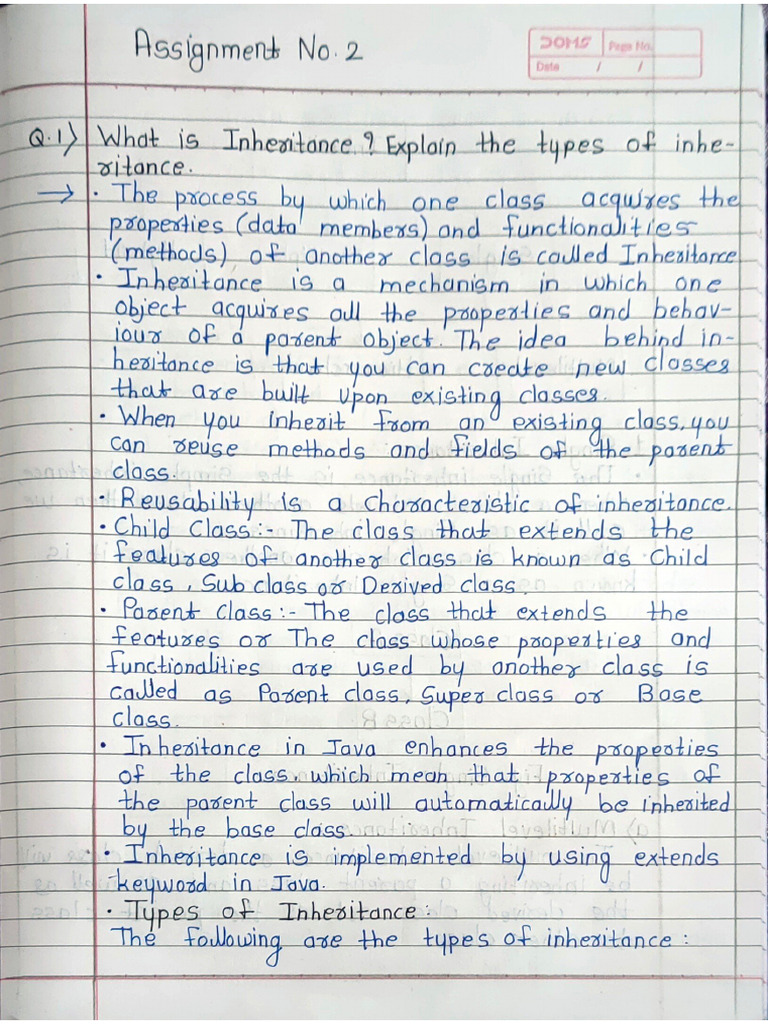 Assignment No. 2
DOMS
Page No.
Date / /
Q.1) What is Inheritance? Explain the types of inhe-
ritance.
→ • The process by which one class acquires the
properties (data members) and functionalities
(methods) of another class is called Inheritance
• Inheritance is a mechanism in which one
object acquires all the properties and behav-
iour of a parent object. The idea behind in-
heritance is that you can create new classes
that are built upon existing classes.
• When you inherit from an existing class, you
can reuse methods and fields of the parent
class.
• Reusability is a characteristic of inheritance.
• Child Class:- The class that extends the
features of another class is known as Child
class, Sub class or Derived class.
• Parent Class:- The class that extends the
features or The class whose properties and
functionalities are used by another class is
called as Parent class, Super class or Base
class.
• Inheritance in Java enhances the properties
of the class, which mean that properties of
the parent class will automatically be inherited
by the base class.
• Inheritance is implemented by using extends
keyword in Java.
• Types of Inheritance:
The following are the types of inheritance: